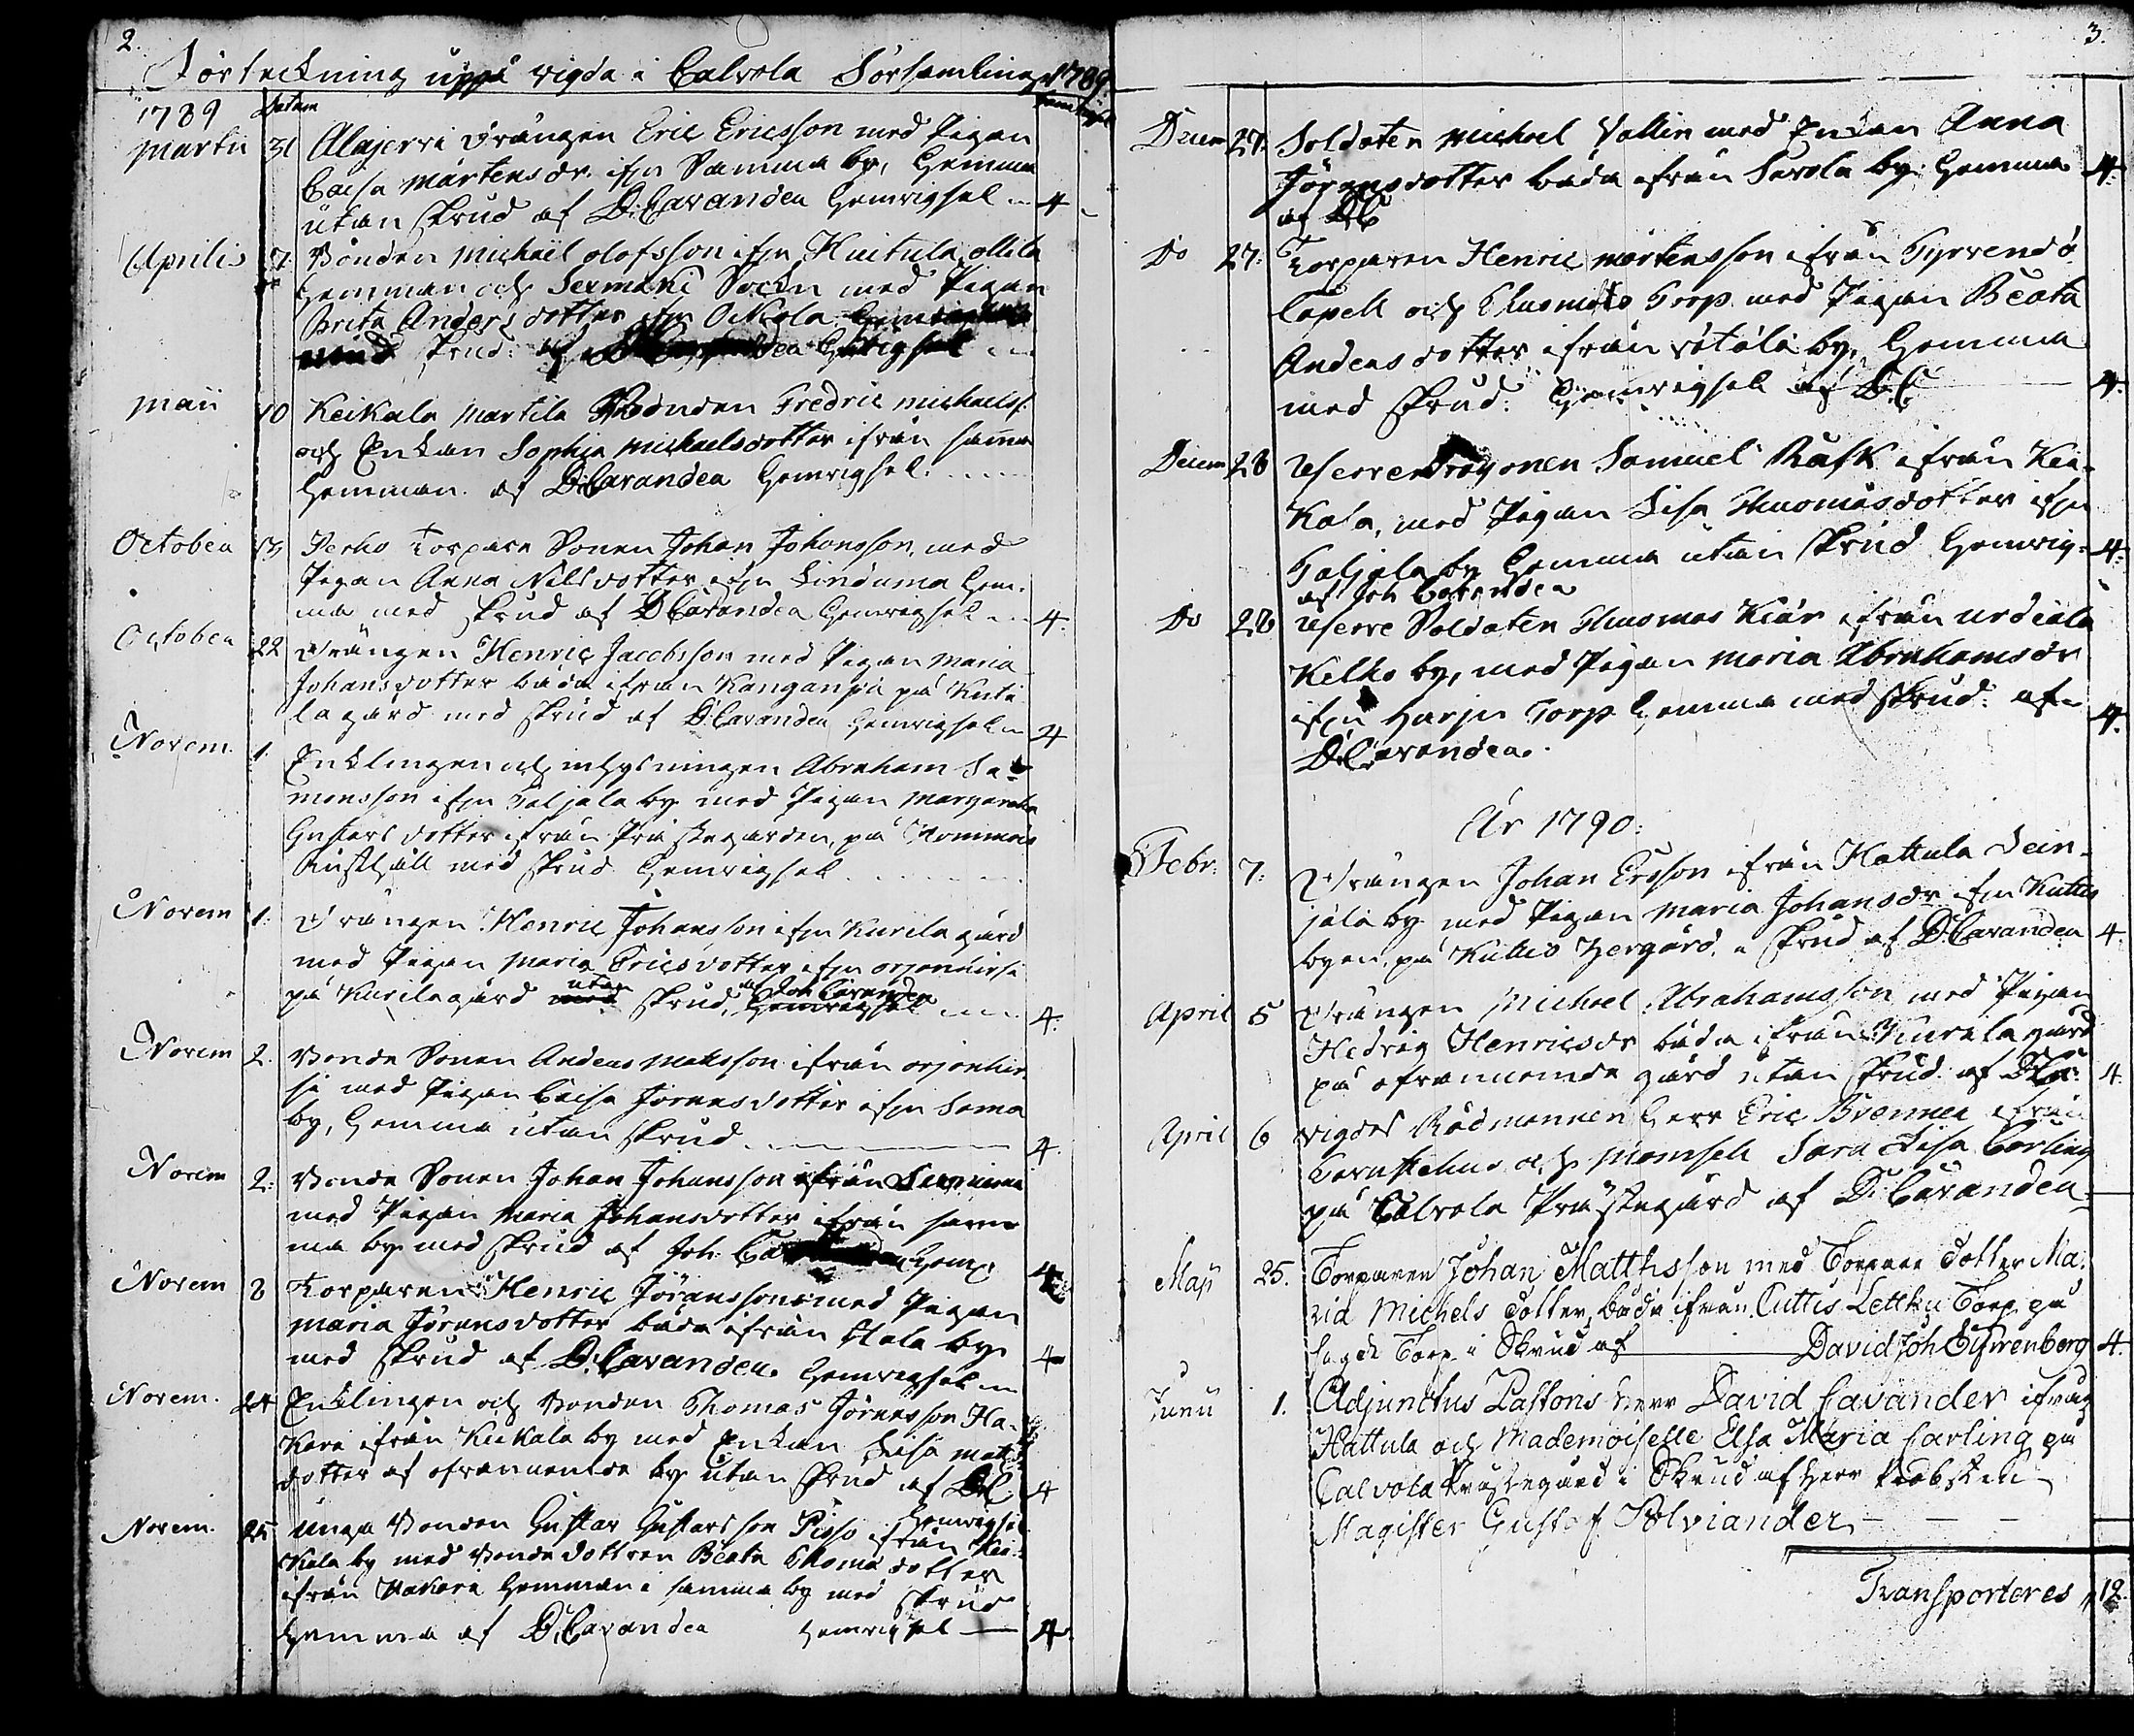 2.
Förteckning uppå vigda i Calvola Församling 1789.
1789 Datum
Martii 31 Alajerri Drängen Eric Ericsson med Pigan
Caisa Mårtensdr ifrn Samma by, Hemma
utan skrud af D: Cavander Hemvigsel 4
Aprilis 7 Bonden Michaël Olofsson ifrn Huitula Ollila
Hemman och Sexmäki Sockn med Pigan
Brita Anders dotter ifrn Oikola
skrud:
Maii 10 Keikala Martila Bonden Fredric Michaelss:
och Enkan Sophia Michaelsdotter ifrån samma
Hemman. af D: Cavander Hemvigsel.
October 13 Perho Torpare Sonen Johan Johansson, med
Pigan Anna Nilsdotter ifrn Linduma Hem-
ma med skrud af D Cavander Hemvigsel 4.
October 22 Drängen Henric Jacobsson med Pigan Maria
Johansdotter båda ifrån Kanganpä på Kuti-
la gård med skrud af D: Cavander Hemvigsel 4
Novem. 1. Enklingen och inhysningen Abraham Sa-
monsson ifrn Taljala by med Pigan Margareta
Gustafs dotter ifrån Prästegården, på
Rusthåll med skrud Hemvigsel
Novem 1. Drängen Henric Johansson ifrn Kurila gård
med Pigan Maria Ericsdotter ifrn Orjenhirsi
på Kurila gård med utan skrud, af Joh Cavander Hemvigsel 4.
Novem 2. Bonde Sonen Anders Matsson ifrån Orjenhir-
si med Pigan Caisa Jöransdotter ifrn Sama
by, Hemma utan skrud 4.
Novem 2: Bonde Sonen Johan Johansson ifrån
med Pigan Maria Johansdotter ifrån sam-
ma by med skrud af Joh. Hem: 4
Novem 8 Torparen Henric Jöransson med Pigan
Maria Jöransdotter båda ifrån by
med skrud af D: Cavander. Hemvigsel 4
Novem. 24 Enklingen och Bonden Thomas Jöransson Ha-
kari ifrån Keikala by med Enkan Lisa Mats-
dotter af ofvannemde by utan skrud af D:C 4
Hemvigsel
Novem. 25 Unga Bonden Gustav Gustavsson Piso ifrån Kei-
kala by med Bonde dottren Beata Thomä dotter
ifrån Hakari Hemman i samma by med skrud
Hemma af D: Cavander Hemvigsel 4.
3.
Decem 27: Soldaten Michael Vallin med Enkan Anna
Jöransdotter båda ifrån Savola by: Hemma 4:
af D:C
Do 27: Torparen Henric Mårtensson ifrån Tyrvendö
Capell och Torp. med Pigan Beata
Anders dotter ifrån by, Hemma
med skrud. Hemvigsel af D:C: 4.
Decem 28 Dragonen Samuel Rask ifrån Kei-
kala, med Pigan Lisa Thuomasdotter ifrn
Taljala by Hemma utan skrud Hemvig: 4:
af Joh Cavander
Do 28 Soldaten Thuomas Kiär ifrån Urdiala
Kelho by, med Pigan Maria Abrahamsdr
ifrn Harju Torp. Hemma med skrud: af 4.
D: Cavander.
År 1790:
Febr: 7: Drängen Johan Ersson ifrån Hattula Lein-
jälä by med Pigan Maria Johansdr ifrn Kuttis
byen, på Kuttis Hergård, i skrud af D: Cavander 4.
April 5 Drängen Michael Abrahamsson med Pigan
Hedvig Henricsdr båda ifrån Kurila gård
på ofvannemde gård utan skrud: af D:Ca: 4.
April 6 Vigdes Rådmannen Herr Eric Brenner ifrån
Tavastehus och Mamsell Sara Lisa Carling
på Calvola Prästegård af D: Cavander
Maji 25. Torparen Johan Matthsson med Torpare dotter Ma-
ria Michels dotter, båda ifrån Cuttis Letku Torp på
sagde Torp i Skrud af David Joh Eifwrenberg 4.
Junii 1. Adjunctus Pastoris Herr David Cavander ifrån
Hattula och Mademoiselle Elsa Maria Carling på
Calvola Prästegård i Skrud af Herr Probsten
Magister Gustaf Polviander
Transporteres 12.